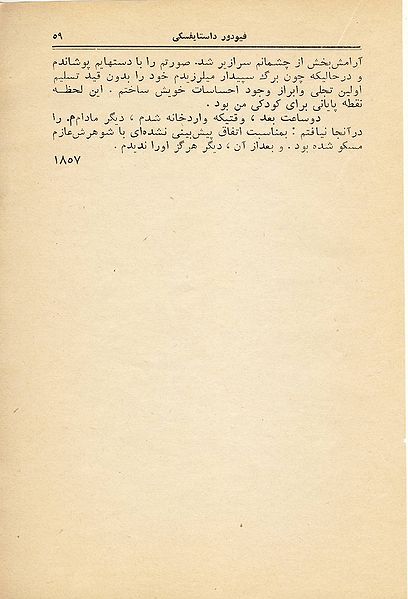 فیودور داستایفسکی ۵۹
آرامش‌بخش از چشمانم سرازیر شد. صورتم را با دستهایم پوشاندم
و درحالیکه چون برگ سپیدار میلرزیدم خود را بدون قید تسلیم
اولین تجلی وابراز وجود احساسات خویش ساختم . این لحظه
نقطه پایانی برای کودکی من بود .
دوساعت بعد ، وقتیکه واردخانه شدم ، دیگر مادام‌م. را
درآنجا نیافتم : بمناسبت اتفاق پیش‌بینی نشده‌ای با شوهرش‌عازم
مسکو شده بود . و بعداز آن ، دیگر هرگز اورا ندیدم .
۱۸۵۷